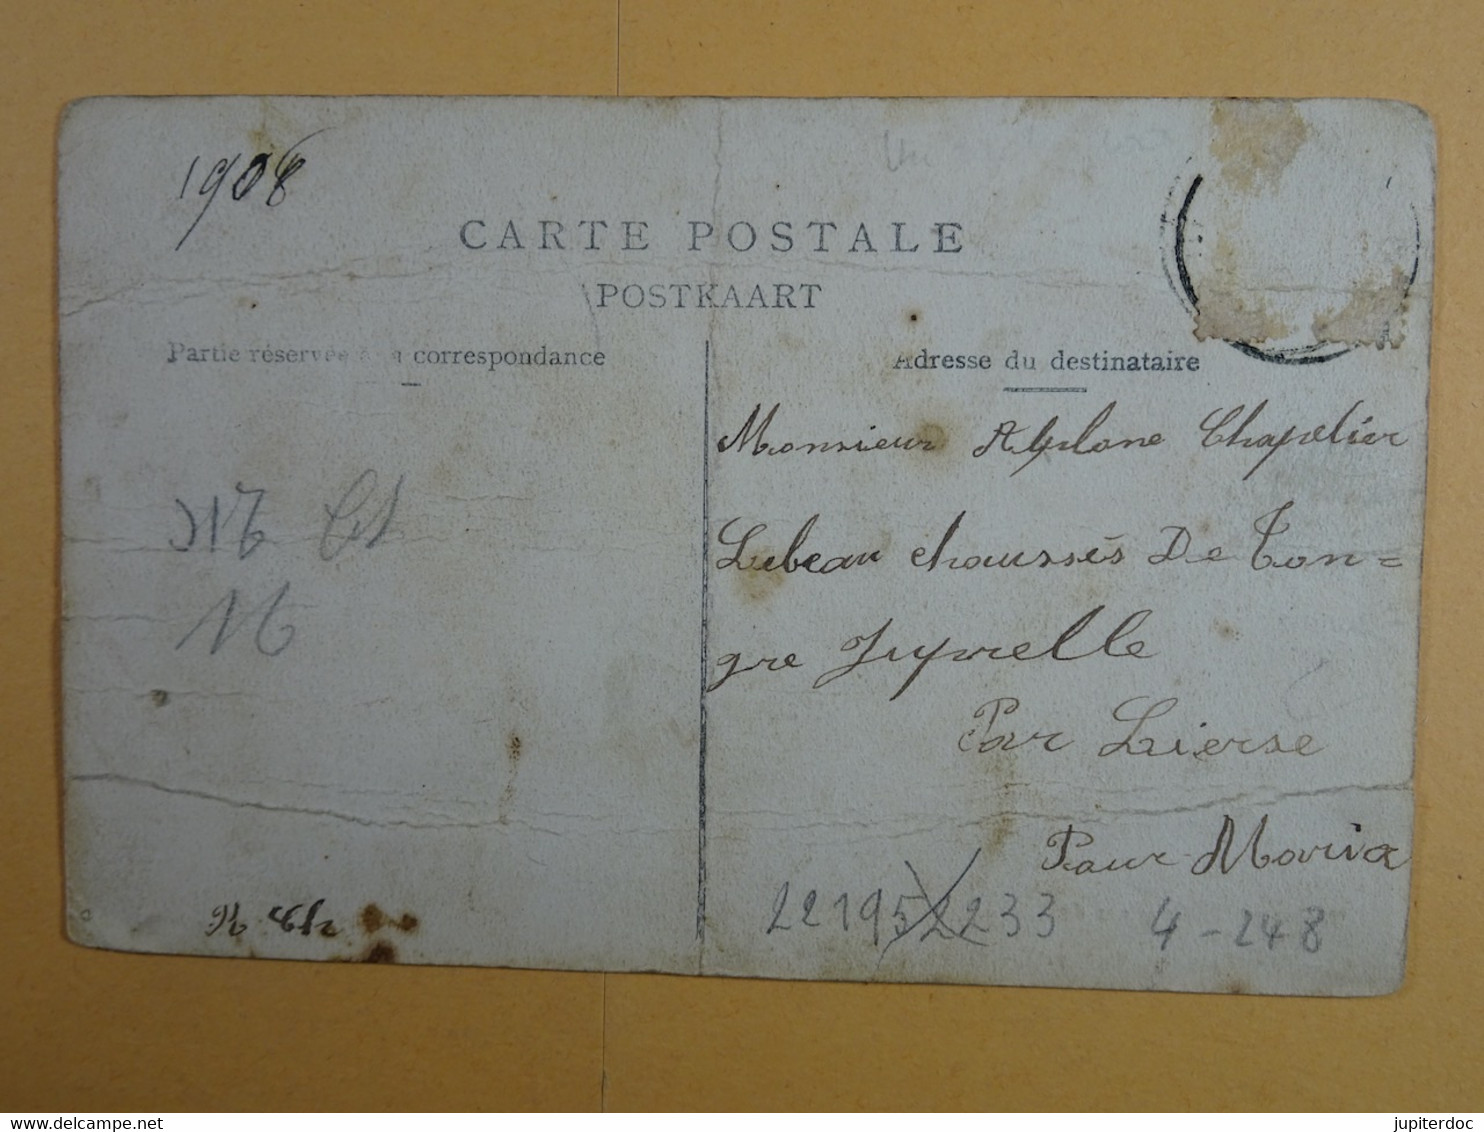 1908
CARTE POSTALE
POSTKAART
Partie réservée à la correspondance
Adresse du destinataire
Monsieur Alphone Chapelier
Lebeau chaussés De Ton=
gre Juprelle
Par Lierse
Pour Maria
22195 2233 4-248
delcampe.net
jupiterdoc